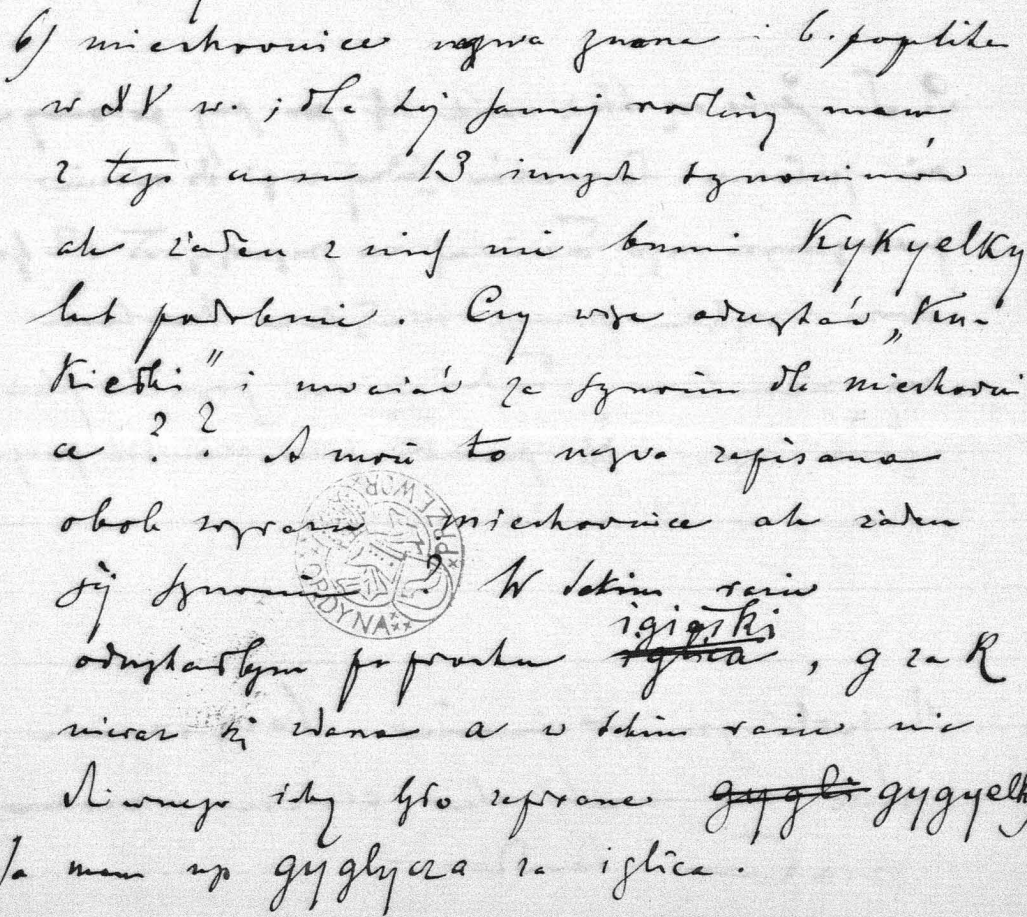 6) miechownice nazwa znana i b. pospolita
w XV w. ; dla tej samej rośliny mam
z tego czasu 13 innych synonimów
ale żaden z nich nie brzmi Kykyelky
lub podobnie. Czy więc odczytać „Ku-
kiełki" i uważać za synonim dla miechowni
ce ? ? A może to nazwa zapisana
obok wyrazu miechownice ale żaden
jej synonim ? W takim razie
odczytałbym po prostu igiełki iglica , g za K
nieraz się zdarza a w takim razie nic
dziwnego iżby było zapisane gygli gygyelky
Ja mam np gyglycza za iglica.
ORDYNA PRZEWOR